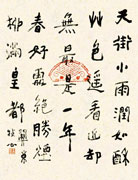 天街小雨潤如酥
草色遙看近却
無最是一年
春好處絕勝煙
柳滿皇都